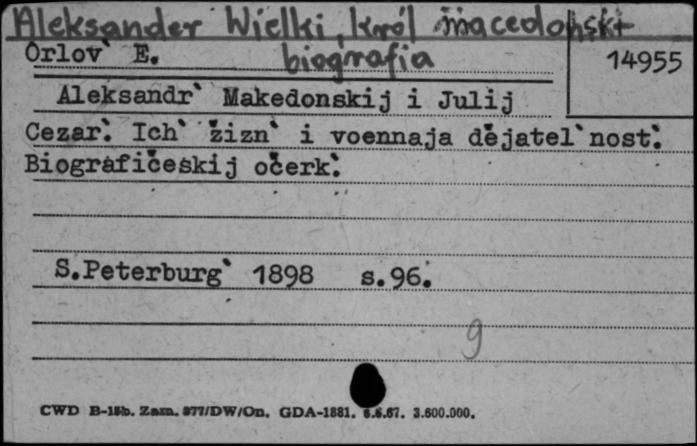 Aleksander Wielki, król macedoński
biografia
Orlov` E.
14955
Aleksandr` Makedonskij i Julij
Cezar`. Ich` žizn` i voennaja dějatel`nost`.
Biografičeskij očerk`.
S.Peterburg` 1898 s.96.
9
CWD B-15b. Zam. 877/DW/On. GDA-1881. 6.6.67. 3.600.000.